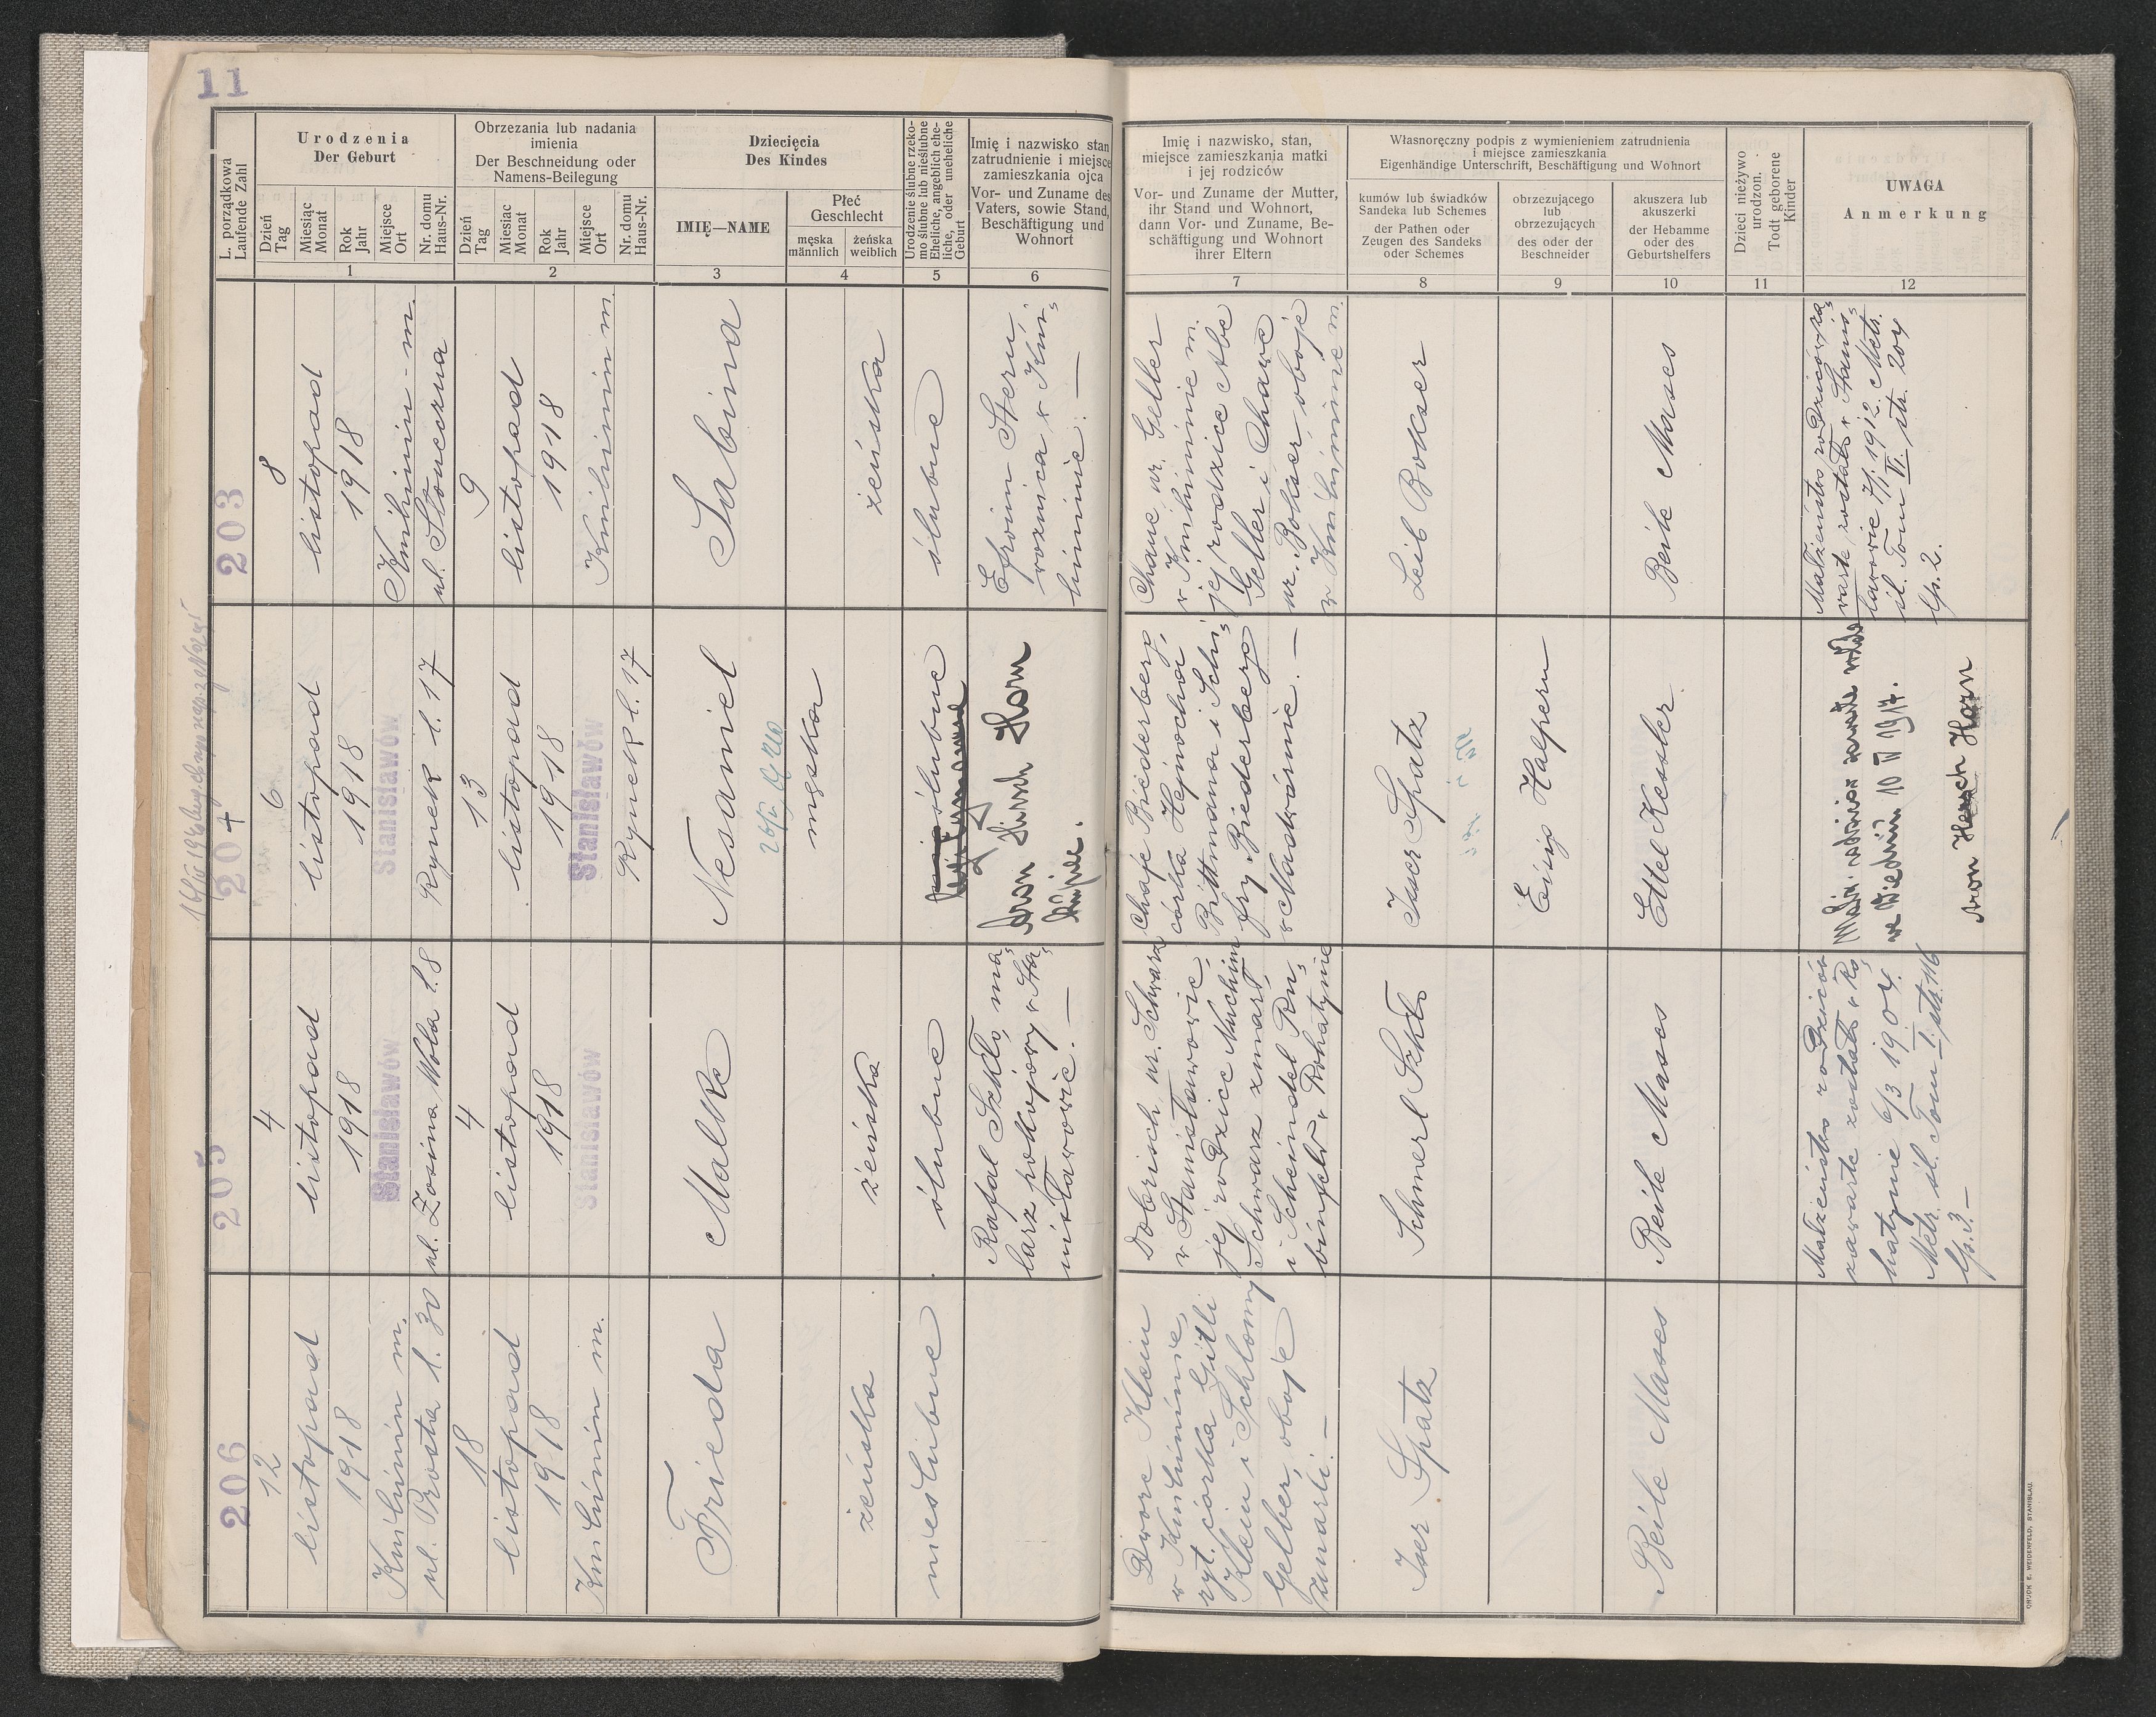 11
L. porządkowa
Laufende Zahl
Urodzenia
Der Geburt
Dzień
Tag
Miesiąc
Monat
Rok
Jahr
Miejsce
Ort
Nr. domu
Haus-Nr.
1
Obrzezania lub nadania
imienia
Der Beschneidung oder
Namens-Beilegung
Dzień
Tag
Miesiac
Monat
Rok
Jahr
Miejsce
Ort
Nr. domu
Haus-Nr.
2
Dziecięcia
Des Kindes
IMIĘ—NAME
3
Płeć
Geschlecht
męska
männlich
żeńska
weiblich
4
Urodzenie ślubne rzeko-
mo ślubne lub nieślubne
Eheliche, angeblich ehe-
liche, oder uneheliche
Geburt
5
Imię i nazwisko stan
zatrudnienie i miejsce
zamieszkania ojca
Vor- und Zuname des
Vaters, sowie Stand,
Beschäftigung und
Wohnort
6
Imię i nazwisko, stan,
miejsce zamieszkania matki
i jej rodziców
Vor- und Zuname der Mutter,
ihr Stand und Wohnort,
dann Vor- und Zuname, Be-
schäftigung und Wohnort
ihrer Eltern
7
Własnoręczny podpis z wymienieniem zatrudnienia
i miejsce zamieszkania
Eigenhändige Unterschrift, Beschäftigung und Wohnort
kumów lub świadków
Sandeka lub Schemes
der Pathen oder
Zeugen des Sandeks
oder Schemes
8
obrzezującego
lub
obrzezujących
des oder der
Beschneider
9
akuszera lub
akuszerki
der Hebamme
oder des
Geburtshelfers
10
Dzieci nieżywo
urodzon.
Todt geborene
Kinder
11
UWAGA
Anmerkung
12
203
8
listopad
1918
Knihinin - m.
ul. Słoneczna
9
listopad
1918
Knihinin m.
Sabina
żeńska
ślubne
Efroim Stern,
woźnica w Kni=
hininie. —
Chane nr. Geller
w Knihininie m.
jej rodzice Abe
Geller i Chawe
nr. Bokser oboje
w Knihininie m.
Leib Bokser
Beile Mases
Małżeństwo rodziców za=
warte zostało w Stanis=
ławowie 7/1. 1912. Metr.
śl. Tom IV. str. 204
lp. 2.
204
6
listopad
1918
Stanisławów
Rynek l. 17
13
listopad
1918
Stanisławów
Rynek l. 17
Nesaniel
męska
ślubne
Aron Hirsch Horn
kupiec.
Chaje Biederberg,
córka Hejnocha
Brittmana i Schi=
fry Biederberg
w Nadwórnie. —
Isser Spatz
Eisig Halpern
Ettel Kessler
we Wiedniu 10 IV 1917.
Aron Hersch Horn
205
4
listopad
1918
Stanisławów
ul. Zosina Wola l. 8
4
listopad
1918
Stanisławów
Malke
żeńska
ślubne
Rafał Szkło, ma=
larz pokojowy w Sta=
nisławowie. —
Dobrisch nr. Schwarz
w Stanisławowie,
jej rodzice Nuchim
Schwarz zmarł
i Scheindel Ru=
binfeld w Rohatynie
Schmerl Szkło
Beile Mases
Małżeństwo rodziców
zawarte zostało w Ro=
hatynie 6/3 1904.
Metr. śl. Tom I. str. 116
lp. 3. —
206
12
listopad
1918
Knihinin m.
ul. Prosta l. 30
18
listopad
1918
Knihinin m.
Frieda
żeńska
nieślubne
Dwore Klein
w Knihininie,
ryt. córka Gitli
Klein i Schlomy
Gelber, oboje
zmarli. —
Iser Spatz
Beile Mases
DRUK E. WEIDENFELD, STANISLAU.